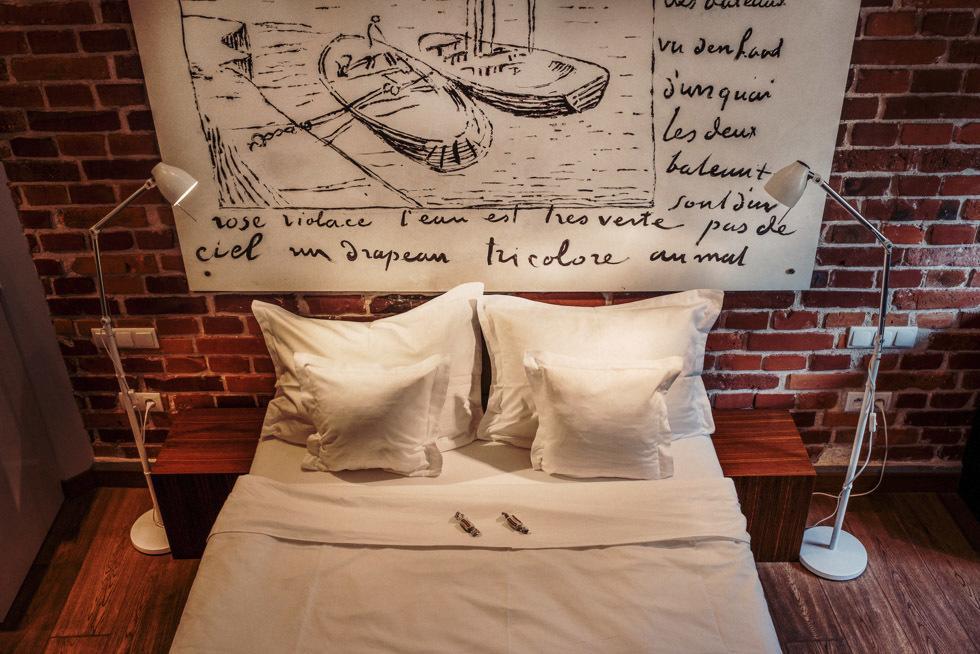 des bateaux
vu den haut
d'un quai
Les deux
bateaux
sont d'un
rose violacé l'eau est tres verte pas de
ciel un drapeau tricolore au mat